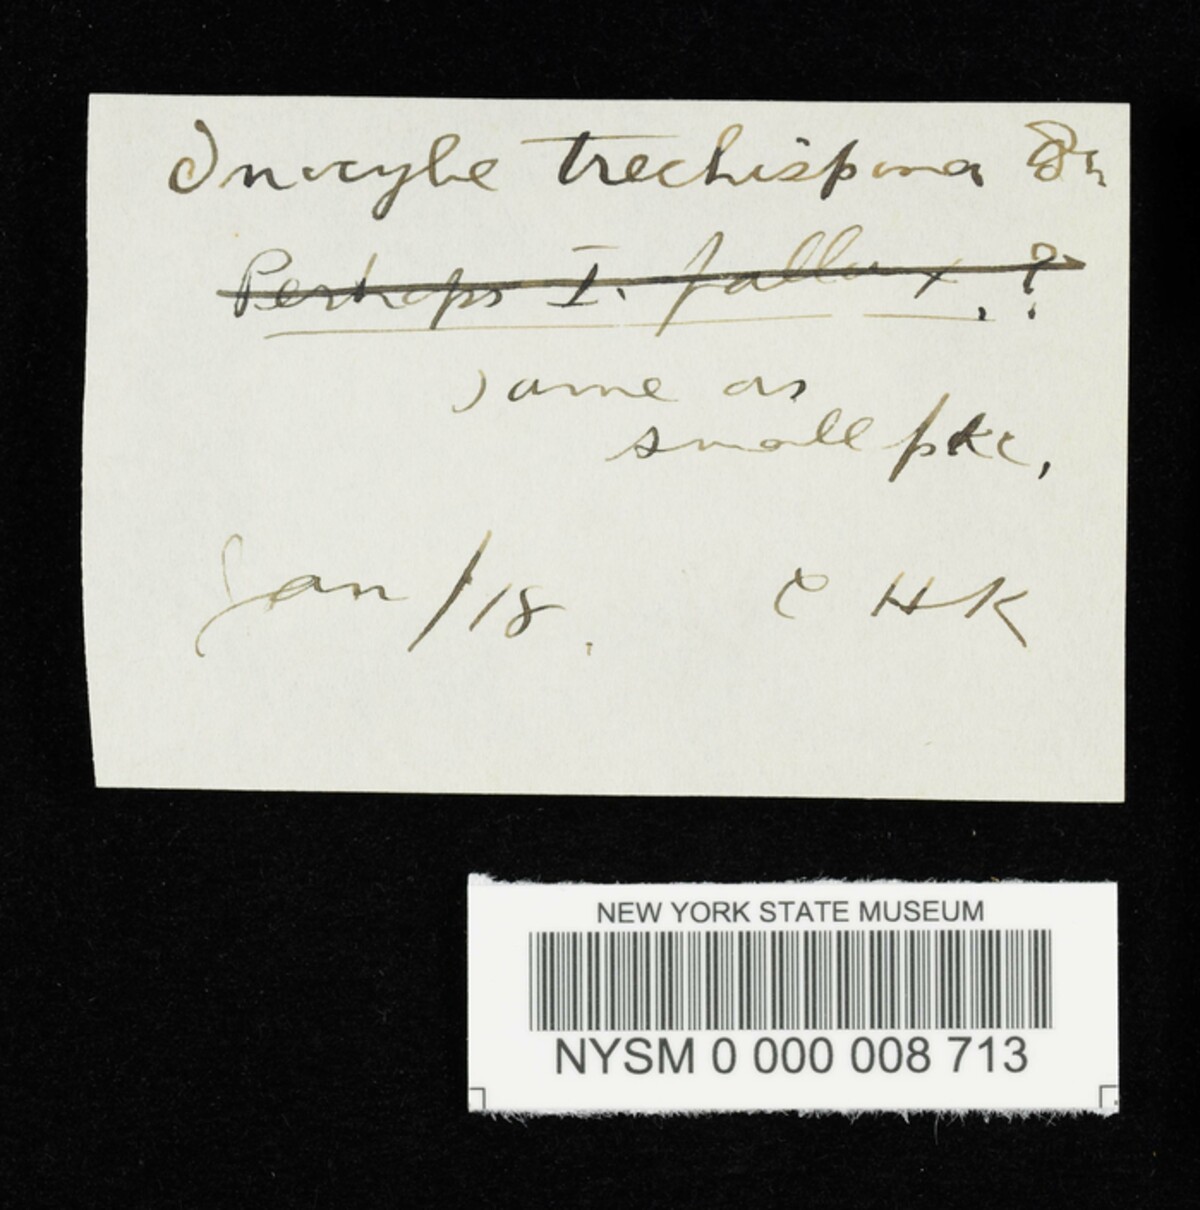 Inocybe trechispora
Perhaps I. fallax. ?
same as
small pkt,
Jan / 18. C H K
NEW YORK STATE MUSEUM
NYSM 0 000 008 713